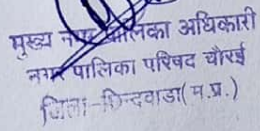 मुख्य नगर पालिका अधिकारी
नगर पालिका परिषद चौरई
जिला-छिन्दवाडा(म.प्र.)